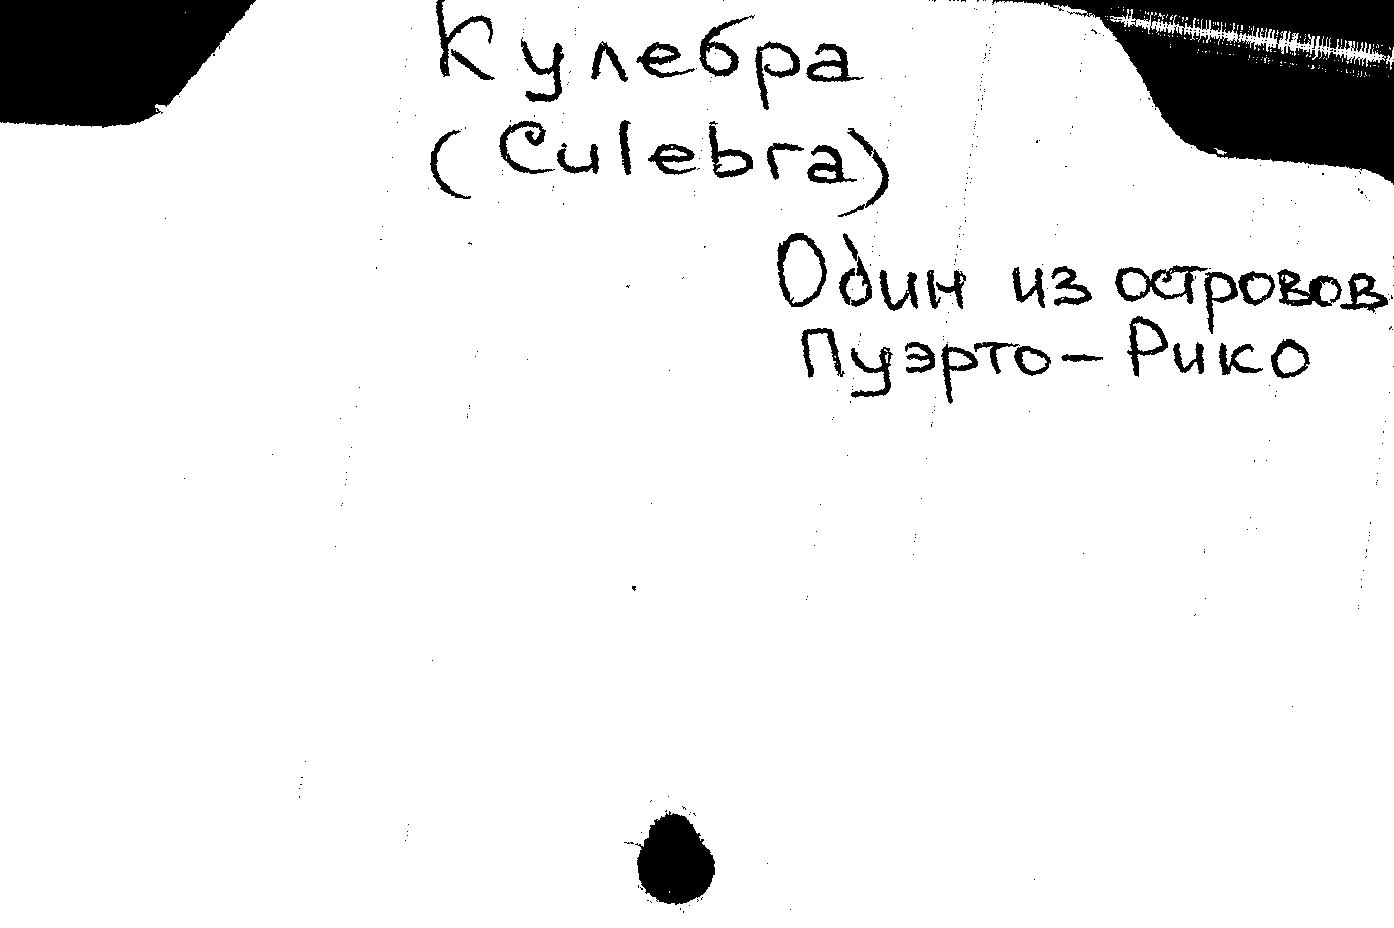 Кулебра
(Culebra)
Один из островов
Пуэрто-Рико